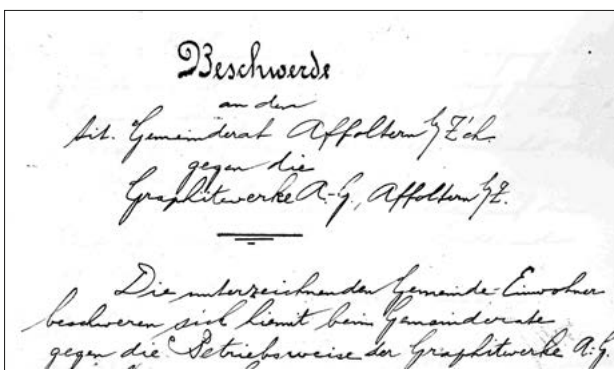 Beschwerde
an den
tit. Gemeinderat Affoltern b/Z'ch.
gegen die
Graphitwerke A.-G., Affoltern b/Z.
Die unterzeichneten Gemeinde-Einwohner
beschweren sich hiemit beim Gemeinderate
gegen die Betriebsweise der Graphitwerke A.-G.